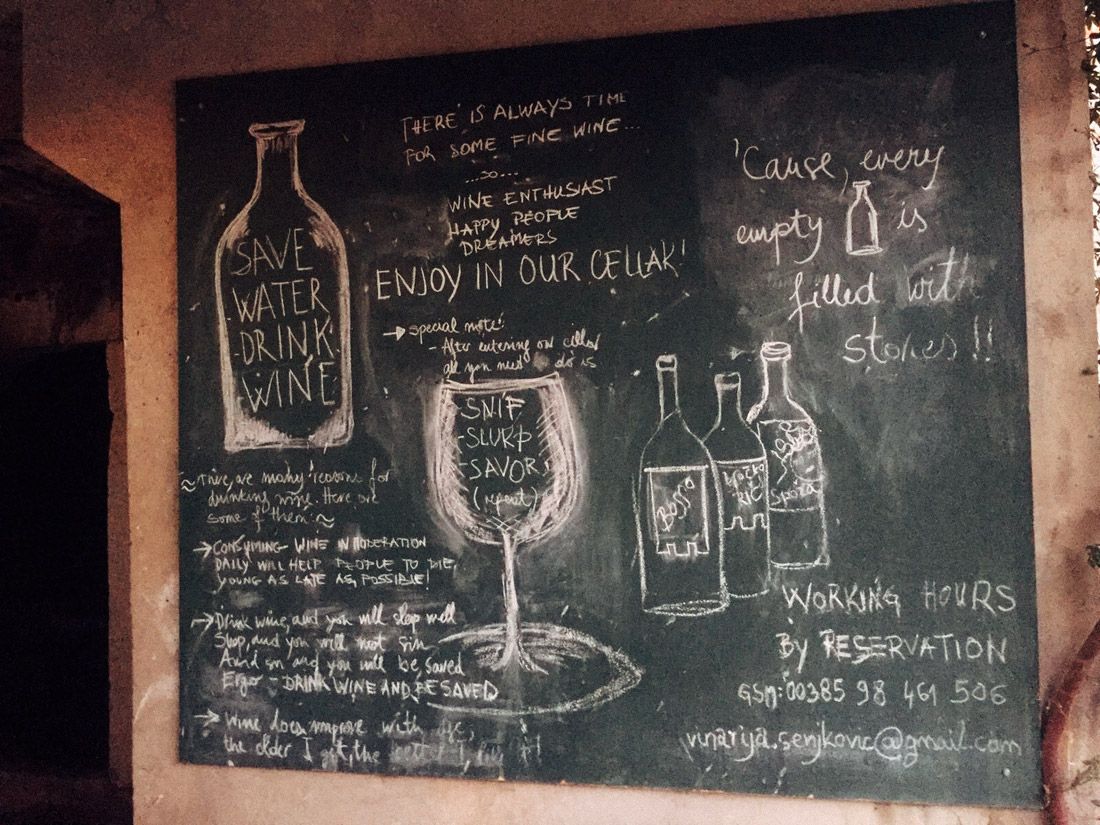 SAVE
WATER
DRINK
WINE
THERE IS ALWAYS TIME
FOR SOME FINE WINE...
...so...
WINE ENTHUSIAST
HAPPY PEOPLE
DREAMERS
ENJOY IN OUR CELLAR!
→ special note:
- After entering our cellar
all you need do is
- SNIF
- SLURP
- SAVOR
(repeat)
'Cause, every
empty is
filled with
stories!!
≈ There are many reasons for
drinking wine. Here are
some of them: ≈
→ CONSUMING WINE IN MODERATION
DAILY WILL HELP PEOPLE TO DIE
YOUNG AS LATE AS POSSIBLE!
→ Drink wine, and you will sleep well
Sleep, and you will not sin
and you will be saved
Ergo - DRINK WINE AND BE SAVED
→ Wine does improve with age,
the older I get, the
Bossa
Spoza
WORKING HOURS
By RESERVATION
GSM: 00385 98 461 506
vinarija.senjkovic@gmail.com